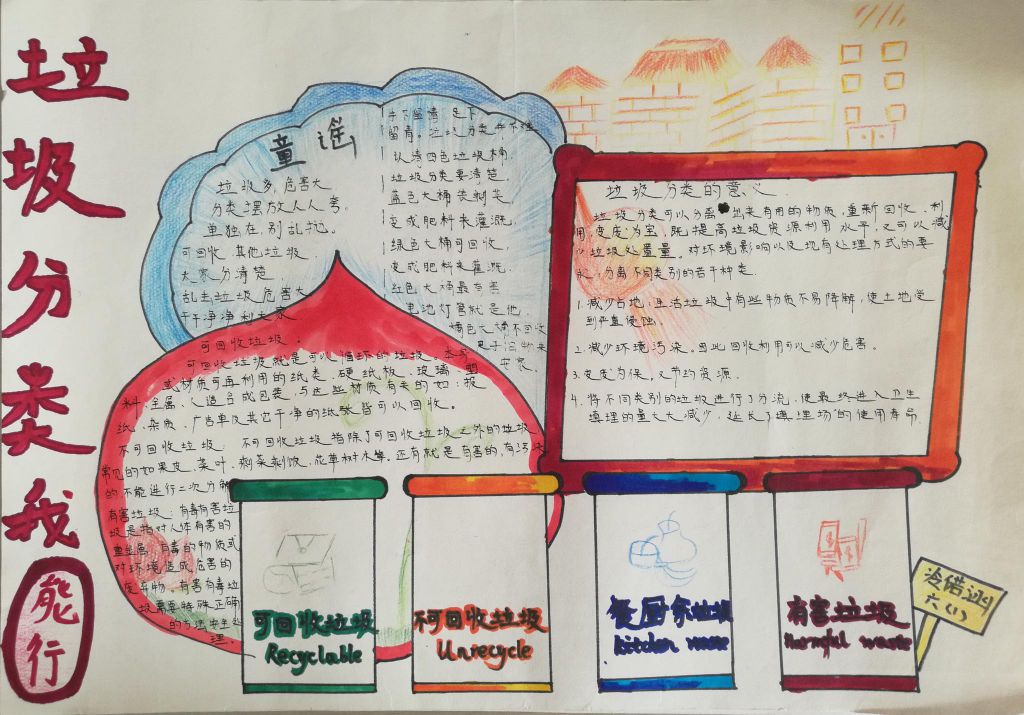 垃圾分类我能行
童谣
垃圾多,危害大
分类摆放人人夸。
单独在,别乱拉。
可回收,其他垃圾
大家分清楚,
乱丢垃圾危害大
干干净净利大家
手下留情,足下
留青。垃圾分类
认清四色垃圾桶,
垃圾分类要清楚。
蓝色大桶
变成肥料来灌溉,
绿色大桶可回收,
变成肥料来灌溉,
红色大桶最有害
电池灯管就是他,
橘色大桶不可收
可回收垃圾。
可回收垃圾就是可以循环的垃圾。本身
或材质可再利用的纸类、硬纸板、玻璃、塑
料、金属、人造合成包装,与这些材质有关的如:报
纸、杂质、广告单及其它干净的纸张皆可以回收。
不可回收垃圾:不可回收垃圾指除了可回收垃圾之外的垃圾
常见的如果皮、菜叶、剩菜剩饭、花草树木等。还有就是有害的,有污染
的不能进行二次分解
有害垃圾:有毒有害垃
圾是指对人体有害的
重金属、有毒的物质或
对环境造成危害的
废弃物。有害有毒垃
圾需要特殊正确
的方法安全处
理
垃圾分类的意义
垃圾分类可以分离出来有用的物质,重新回收、利
用,变废为宝,既提高垃圾资源利用水平,又可以减
少垃圾处置量。对环境影响以及现有处理方式的要
求,分离不同类别的若干种类.
1.减少占地:生活垃圾中有些物质不易降解,使土地受
到严重侵蚀。
2.减少环境污染。因此回收利用可以减少危害。
3.变废为保,又节约资源.
4.将不同类别的垃圾进行了分流,使最终进入卫生
填埋的量大大减少,延长了填埋场的使用寿命
可回收垃圾
Recyclable
不可回收垃圾
Unrecycle
餐厨余垃圾
kitchen waste
有害垃圾
Harmful waste
六(1)